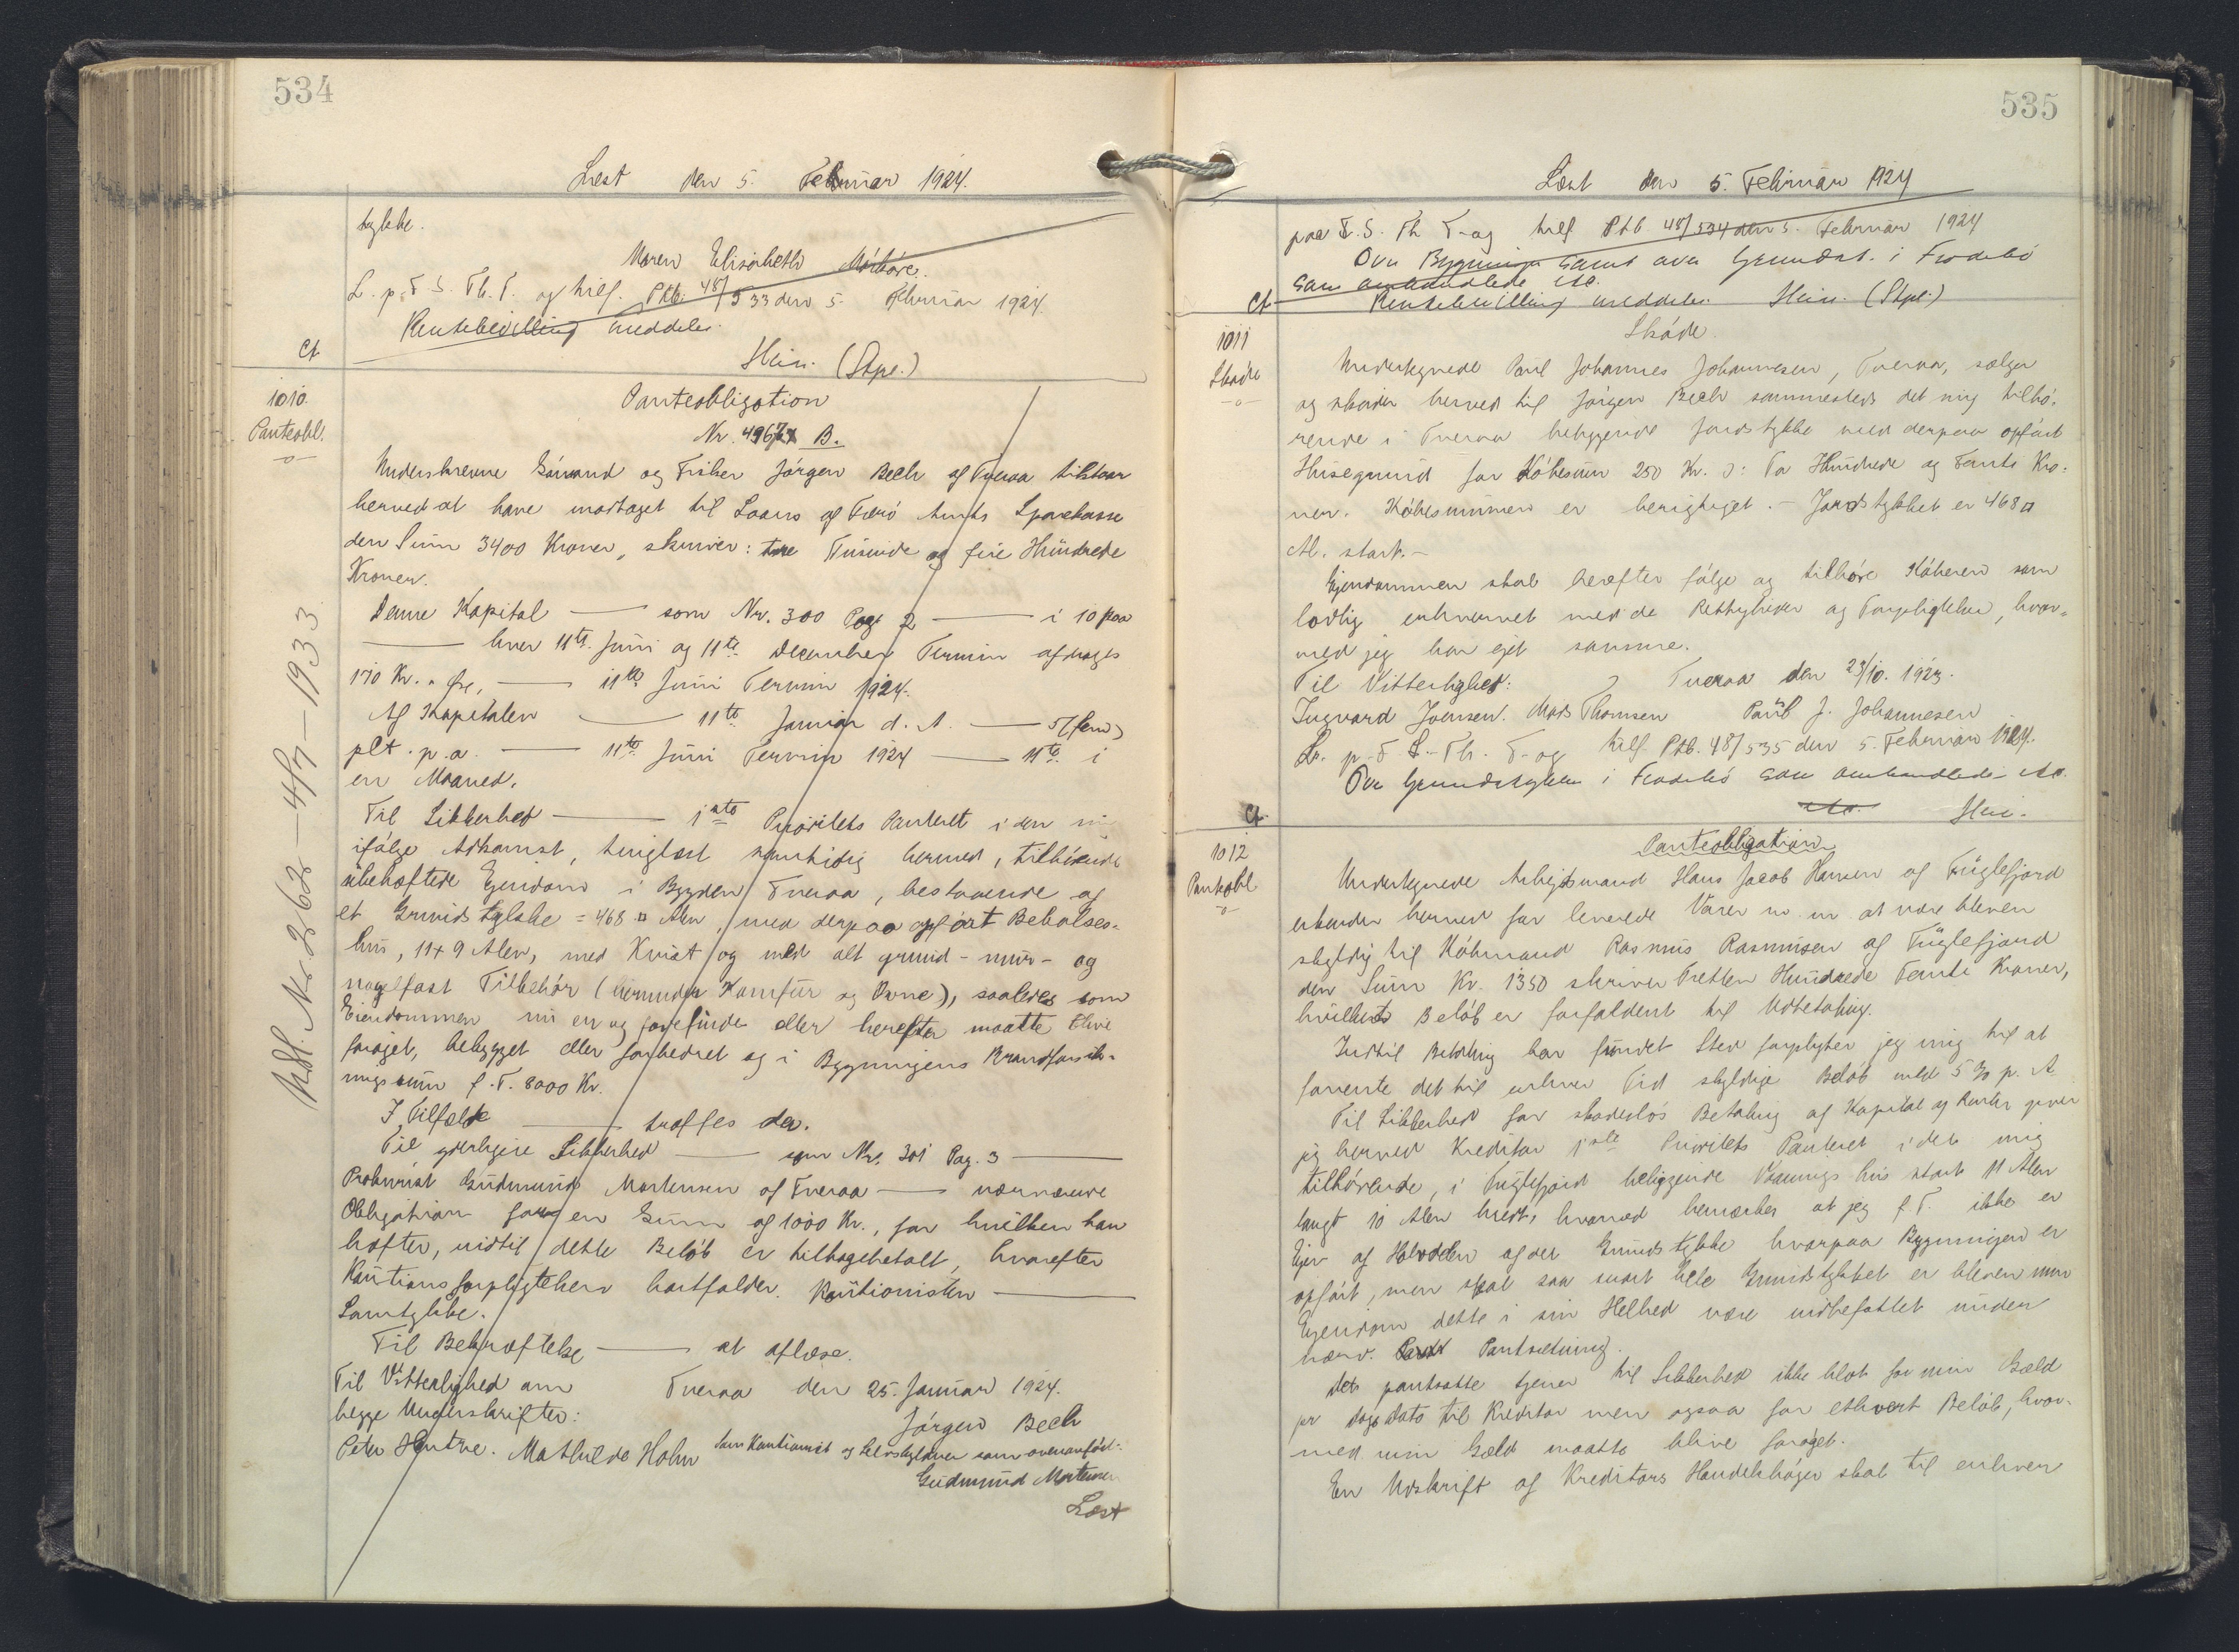 534
Læst den 5. Februar 1924.
tykke.
Maren Elisabeth Mörköre.
L. p. F. S. Th. T. og tilf. Ptb. 48/533 den 5. Februar 1924.
Rentebevilling meddeles.
Cf.
Hein. (Stpl.)
1010.
Panteobl.
Panteobligation
Nr. 49674 B.
Underskrevne Sömand og Fisker Jörgen Bech af Tveraa tilstaar
herved at have modtaget til Laans af Færö Amts Sparekasse
den Sum 3400 Kroner, skriver: tre Tusinde og fire Hundrede
Kroner.
Denne Kapital — som Nr. 300 Pag 2 — i 10 paa
— hver 11te Juni og 11te December Termin afdrages
170 Kr. " Øre, — 11te Juni Termin 1924.
Af Kapitalen — 11te Januar d. A. — 5 (fem)
pCt. p. a. — 11te Juni Termin 1924 — 11te i
en Maaned.
Til Sikkerhed — 1ste Prioritets Panteret i den mig
ifölge Adkomst, tinglæst samtidig hermed, tilhörende
ubehæftede Ejendom i Bygden Tveraa, bestaaende af
et Grundstykke = 468 □ Alen, med derpaa opfört Beboelses-
hus, 11 × 9 Alen, med Kvist og med alt grund- mur- og
nagelfast Tilbehör (herunder Komfur og Ovne), saaledes som
Ejendommen nu er og forefindes eller herefter maatte blive
foröget, bebygget eller forbedret og i Bygningens Brandforsik-
ringssum f. T. 8000 Kr.
I Tilfælde — træffes der.
Til yderligere Sikkerhed — som Nr. 301 Pag. 3 —
Prokurist Gudmund Mortensen af Tveraa — nærværende
Obligation for en Sum af 1000 Kr., for hvilken han
hæfter, indtil dette Belöb er tilbagebetalt, hvorefter
Kautionsforpligtelsen bortfalder. Kautionisten —
Samtykke.
Til Bekræftelse — at aflæse.
Til Vitterlighed om Tveraa den 25. Januar 1924.
begge Underskrifter: Jörgen Bech
Mathilde Holm Som Kautionist og Selvskyldner som ovenanfört:
Gudmund Mortensen
Læst
Udl. Nr. 262 — 4/7 — 1933
535
Læst den 5. Februar 1924
paa F. S. Th. T. og tilf Ptb 48/534 den 5. Februar 1924
Ovn Bygninger samt ova Grundst. i Frodebö
som omhandlede
Cf. Rentebevilling meddeles. Hein. (Stpl.)
1011
Sköde
Sköde.
Undertegnede Paul Johannes Johannesen, Tveraa, sælger
og sköder herved til Jörgen Bech sammesteds det mig tilhö-
rende i Tveraa beliggende Jordstykke med derpaa opfört
Husegrund for Köbesum 250 Kr. ɔ: To Hundrede og Femti Kro-
ner. Köbesummen er berigtiget. — Jordstykket er 468 □
Al. stort. —
Ejendommen skal herefter fölge og tilhöre Köberen som
lovlig erhvervet med de Rettigheder og Forpligtelser, hvor-
med jeg har ejet samme.
Til Vitterlighed: Tveraa den 23/10. 1923.
Ingvard Joensen. Mads Thomsen Paul J. Johannesen
L. p. F. S. Th. T. og tilf. Ptb. 48/535 den 5. Februar 1924.
Ova Grundstykke i Frodebö som omhandlede
Cf. Hein.
1012
Panteobl
Panteobligation
Undertegnede Arbejdsmand Hans Jacob Hansen af Fuglefjord
erkender herved for leverede Varer m. m. at være bleven
skyldig til Köbmand Rasmus Rasmusen af Fuglefjord
den Sum Kr. 1350 skriver Tretten Hundrede Femti Kroner,
hvilket Belöb er forfaldent til Udbetaling.
Indtil Betaling har fundet Sted forpligter jeg mig til at
forrente det til enhver Tid skyldige Belöb med 5 % p. A
Til Sikkerhed for skadeslös Betaling af Kapital og Renter giver
jeg herved Kreditor 1ste Prioritets Panteret i det mig
tilhörende, i Fuglefjord beliggende Vaanings hus stort 11 Alen
langt 10 Alen bredt, hvorved bemærkes at jeg f. T. ikke er
Ejer af Halvdelen af det Grundstykke hvorpaa Bygningen er
opfört, men skal saa snart hele Grundstykket er bleven min
Ejendom dette i sin Helhed være indbefattet under
nærv. Pantsætning.
Det pantsatte tjener til Sikkerhed ikke blot for min Gæld
pr Dags Dato til Kreditor men ogsaa for ethvert Belöb, hvor-
med min Gæld maatte blive foröget.
En Udskrift af Kreditors Handelsböger skal til enhver